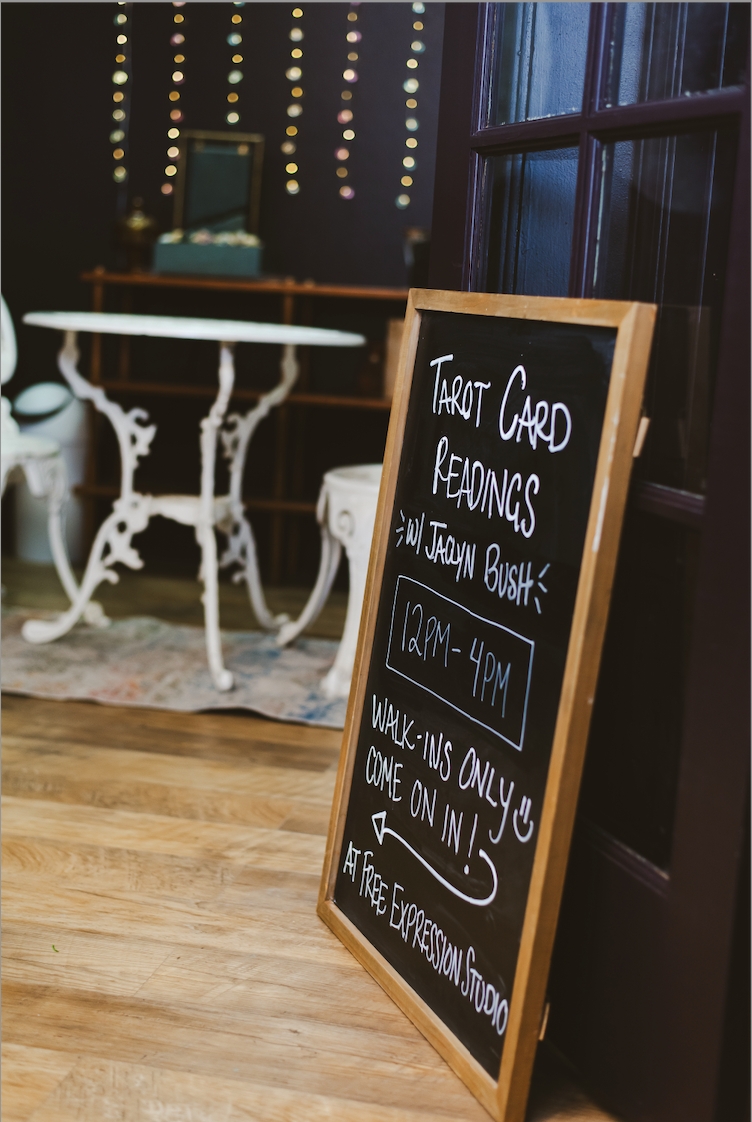 TAROT CARD
READINGS
W/ JACLYN BUSH
12PM - 4PM
WALK-INS ONLY
COME ON IN!
AT FREE EXPRESSION STUDIO